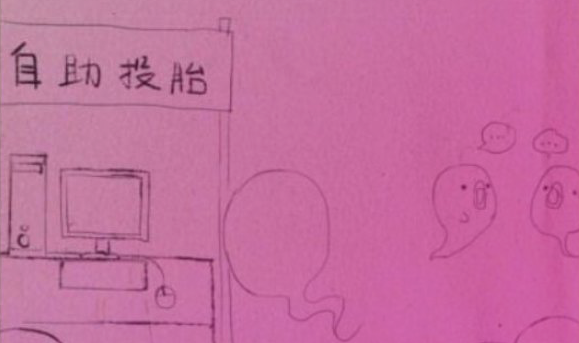 自助投胎
...
...